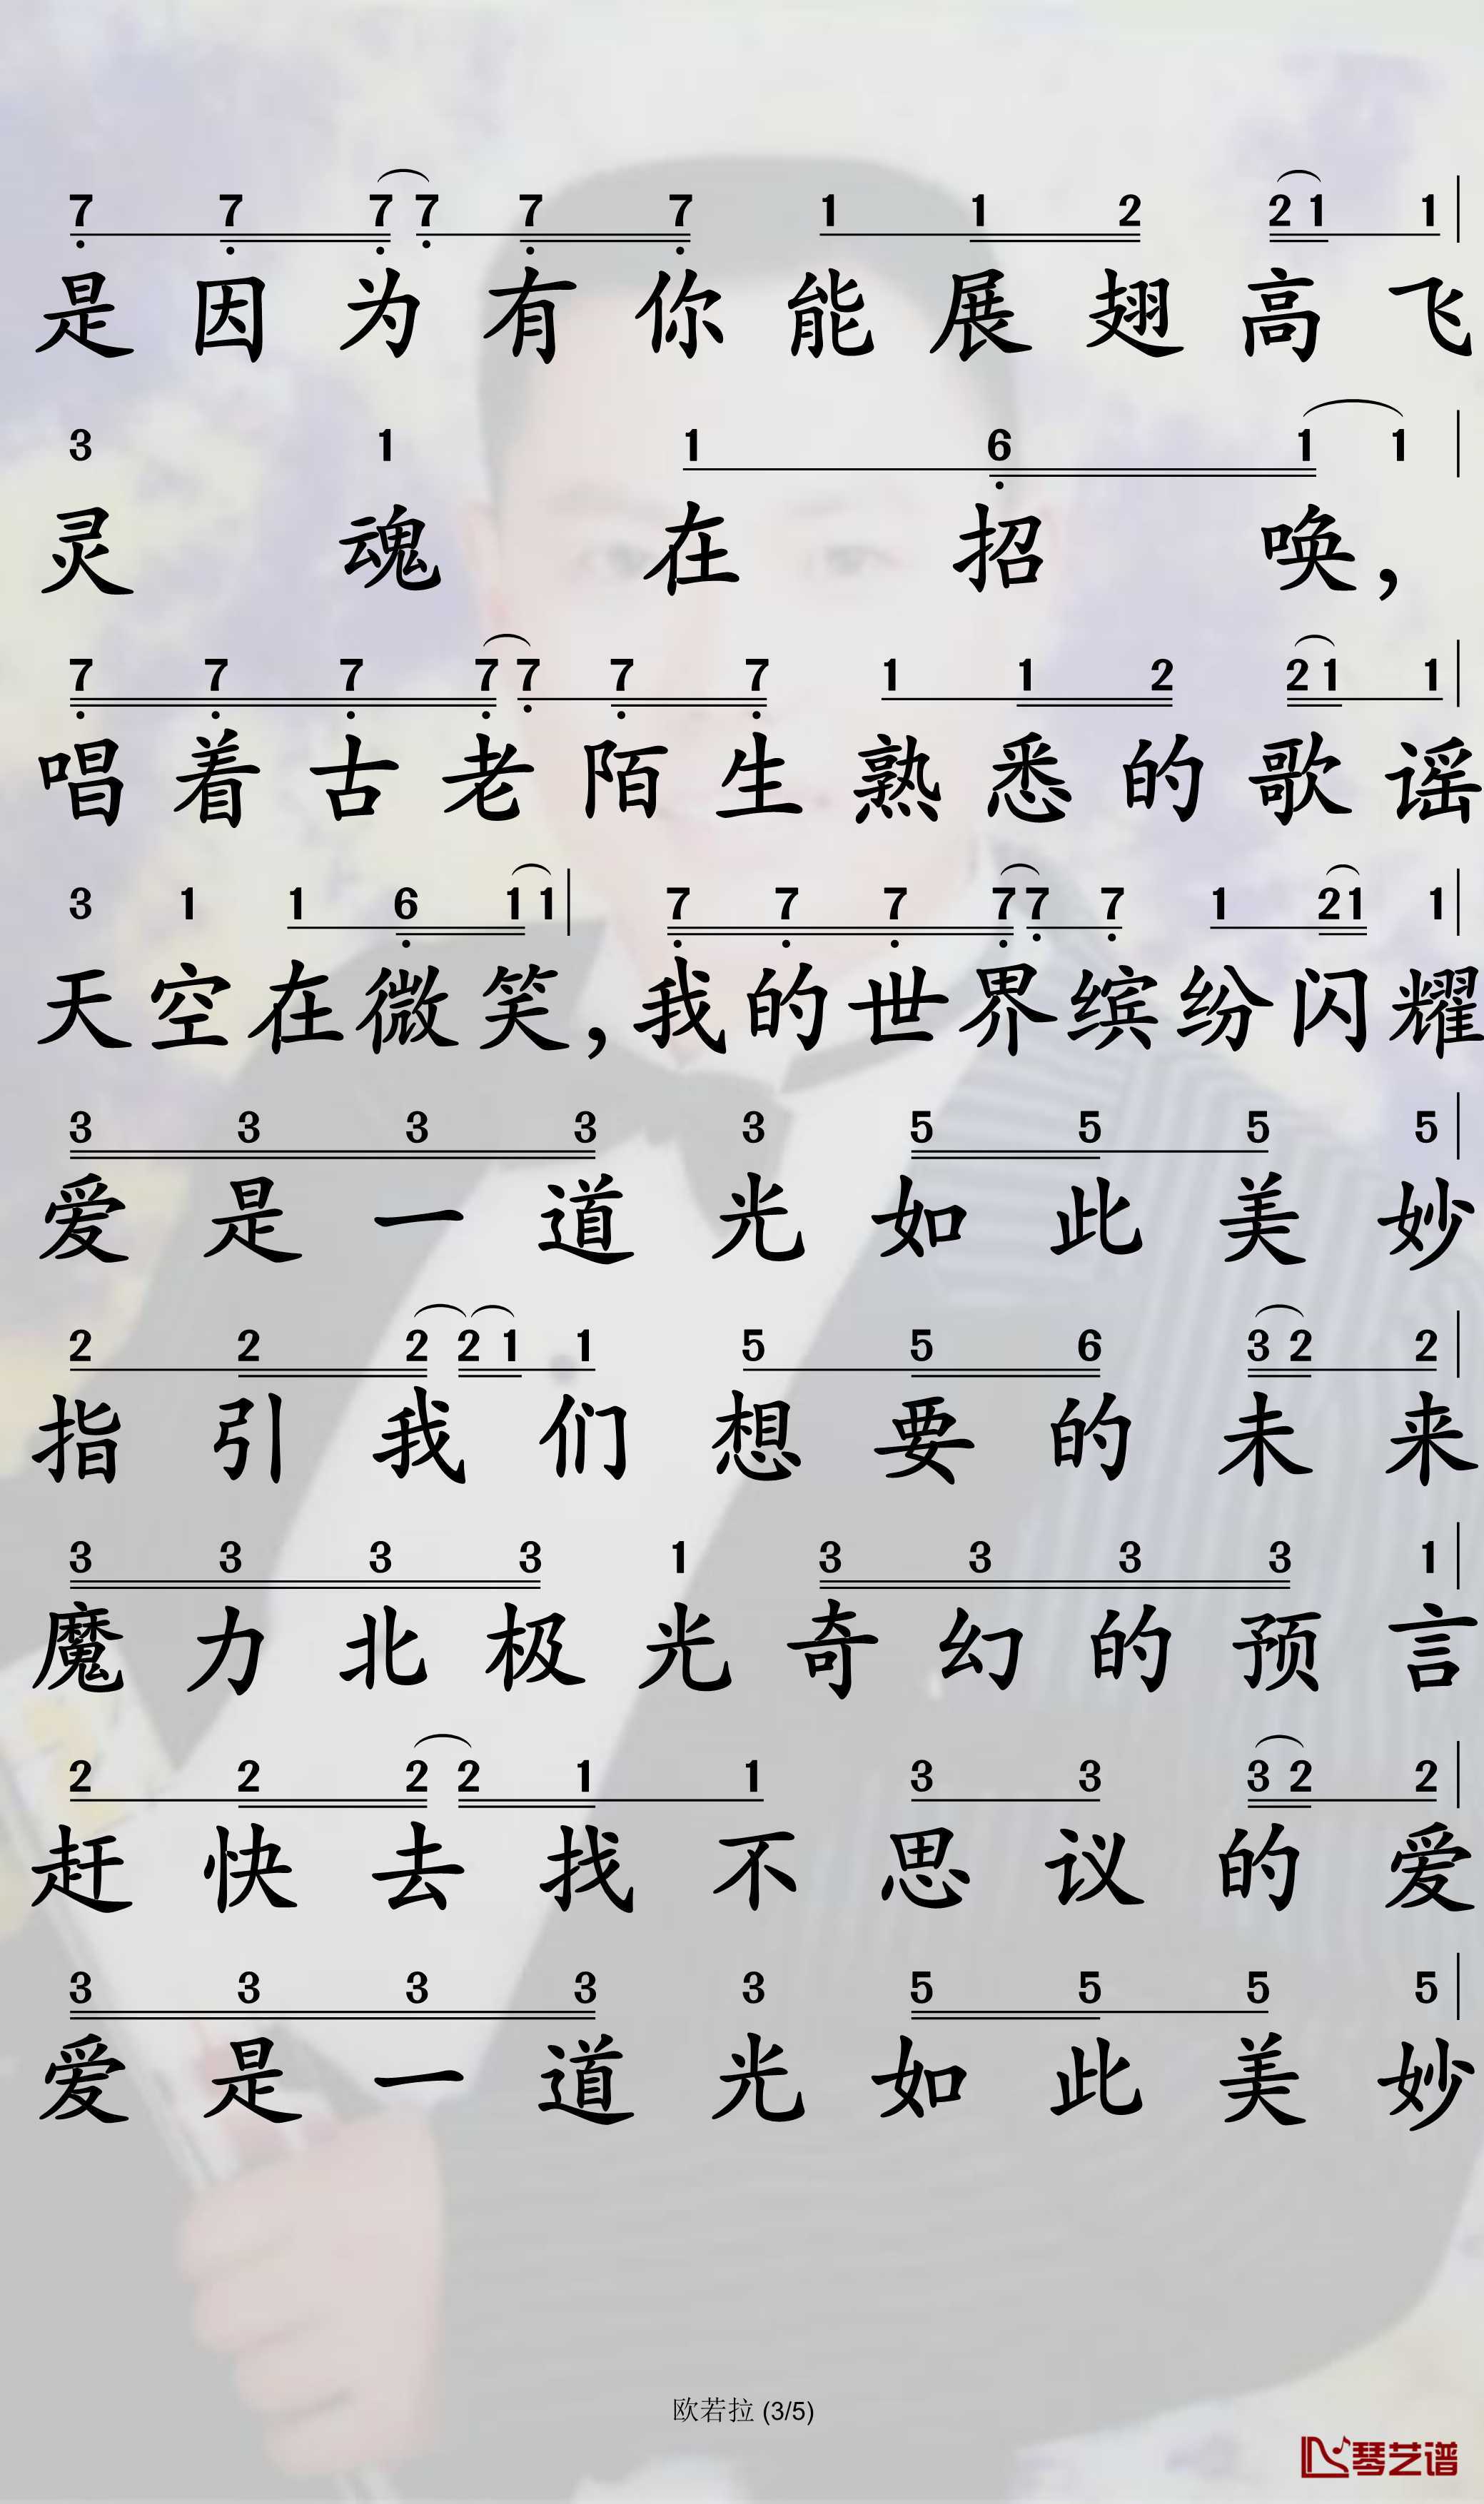 7 7 7 7 7 7 1 1 2 2 1 1
是因为有你能展翅高飞
3 1 1 6 1 1
灵魂在招唤，
7 7 7 7 7 7 7 1 1 2 2 1 1
唱着古老陌生熟悉的歌谣
3 1 1 6 1 1 7 7 7 7 7 7 1 2 1 1
天空在微笑，我的世界缤纷闪耀
3 3 3 3 3 5 5 5 5
爱是一道光如此美妙
2 2 2 2 1 1 5 5 6 3 2 2
指引我们想要的未来
3 3 3 3 1 3 3 3 3 1
魔力北极光奇幻的预言
2 2 2 2 1 1 3 3 3 2 2
赶快去找不思议的爱
3 3 3 3 3 5 5 5 5
爱是一道光如此美妙
欧若拉 (3/5)
琴艺谱